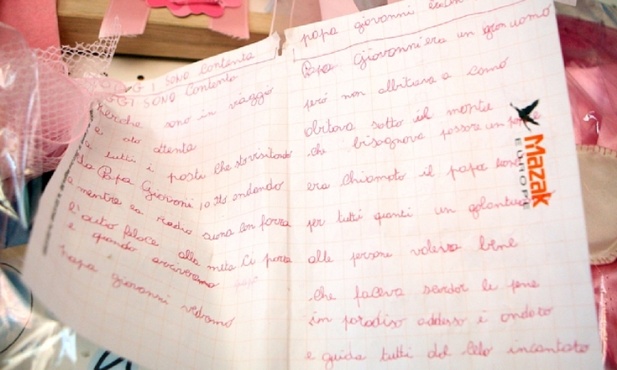 OGGI SONO contenta
OGGI SONO Contenta
perche sono in viaggio
e sto attenta
a tutti i posti che sto visitando
da Papa Giovanni io sto andando
e mentre la radio suona con forza
l'auto feloce alla meta ci porta
e quando arriveremo
papa giovanni vedremo
papa giovanni
Papa Giovanni era un gran uomo
però non abitava a como
abitava sotto il monte
che bisognava passare un
era chiamato il papa
per tutti quanti un galantuomo
alle persone voleva bene
che faceva scordar le pene
in paradiso adesso è andato
e guida tutti dal cielo incantato
Mazak
EUROPE